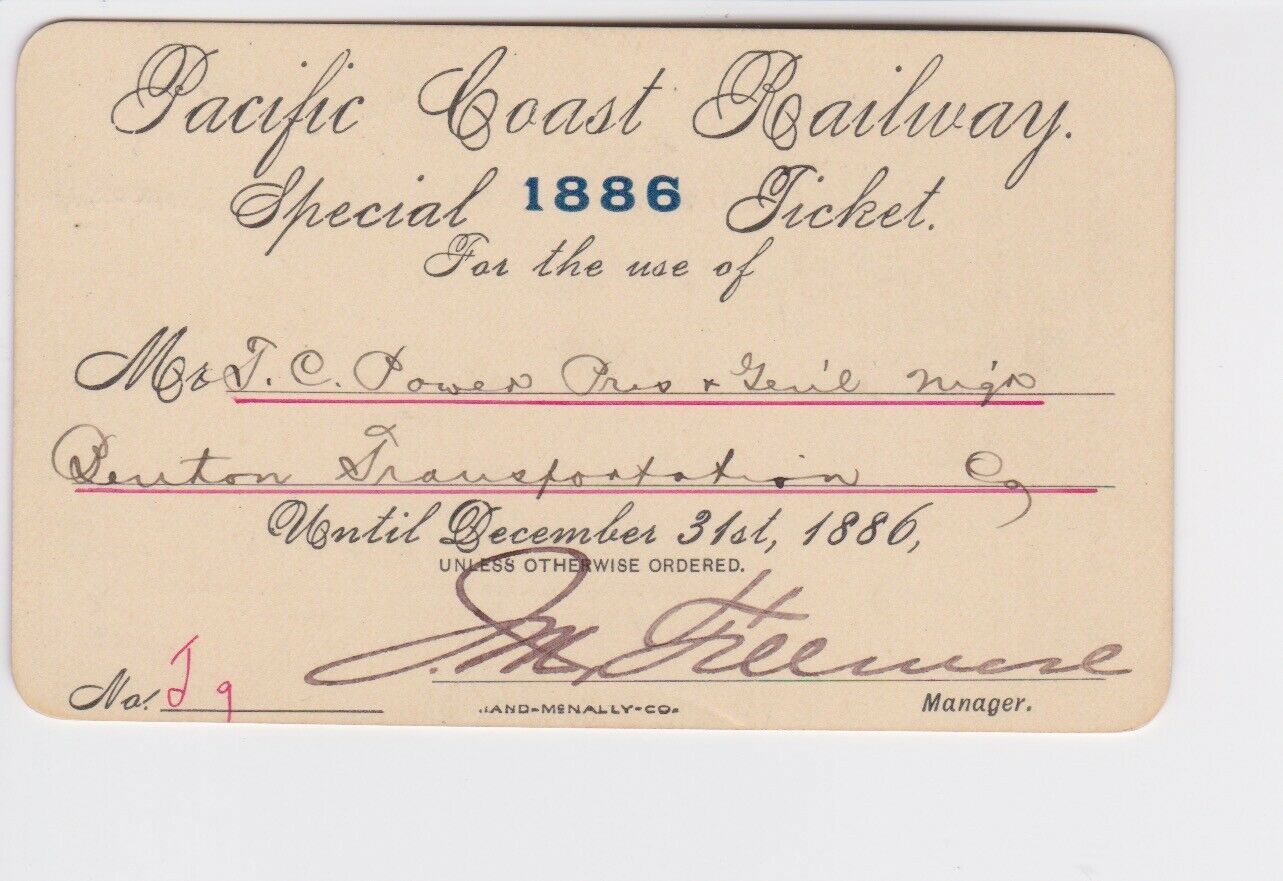 Pacific Coast Railway.
Special 1886 Ticket.
For the use of
Mr T. C. Power Pres & Gen'l Mgr
Benton Transportation Co
Until December 31st, 1886,
UNLESS OTHERWISE ORDERED.
J. M. Fillmore
No. J 9
AND-McNALLY-CO.
Manager.